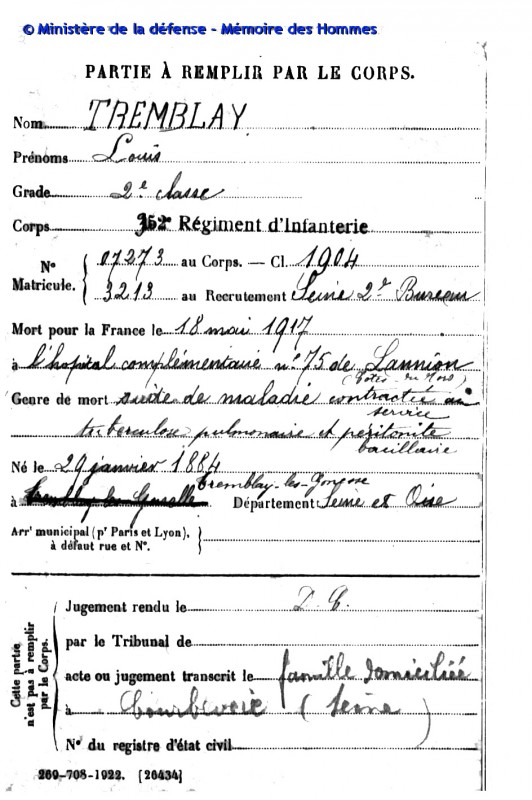 © Ministère de la défense - Mémoire des Hommes
PARTIE À REMPLIR PAR LE CORPS.
Nom TREMBLAY
Prénoms Louis
Grade 2e classe
Corps 352e Régiment d'Infanterie
N° Matricule. { 07273 au Corps. — Cl. 1904
3213 au Recrutement Seine 2e Bureau
Mort pour la France le 18 mai 1917
à l'hopital complémentaire n° 75 de Lannion
(Côtes-du-Nord)
Genre de mort suite de maladie contractée au
service
tuberculose pulmonaire et péritonite
bacillaire
Né le 29 janvier 1884
tremblay-les-Gonesse
à Département Seine et Oise
Arrt municipal (pr Paris et Lyon), à défaut rue et N°. }
Cette partie n'est pas à remplir par le Corps.
Jugement rendu le
par le Tribunal de
acte ou jugement transcrit le famille domiciliée
à Courbevoie (Seine)
N° du registre d'état civil
269-708-1922. [26434]